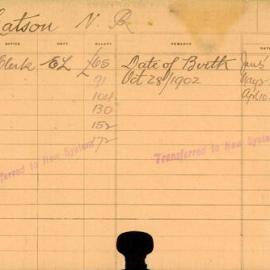 atson N. R
OFFICE DEPT SALARY REMARKS DATE
Clerk EL £65 Date of Birth
91 Oct 28/1902
104
130
152
172
Transferred to New System
Transferred to New System